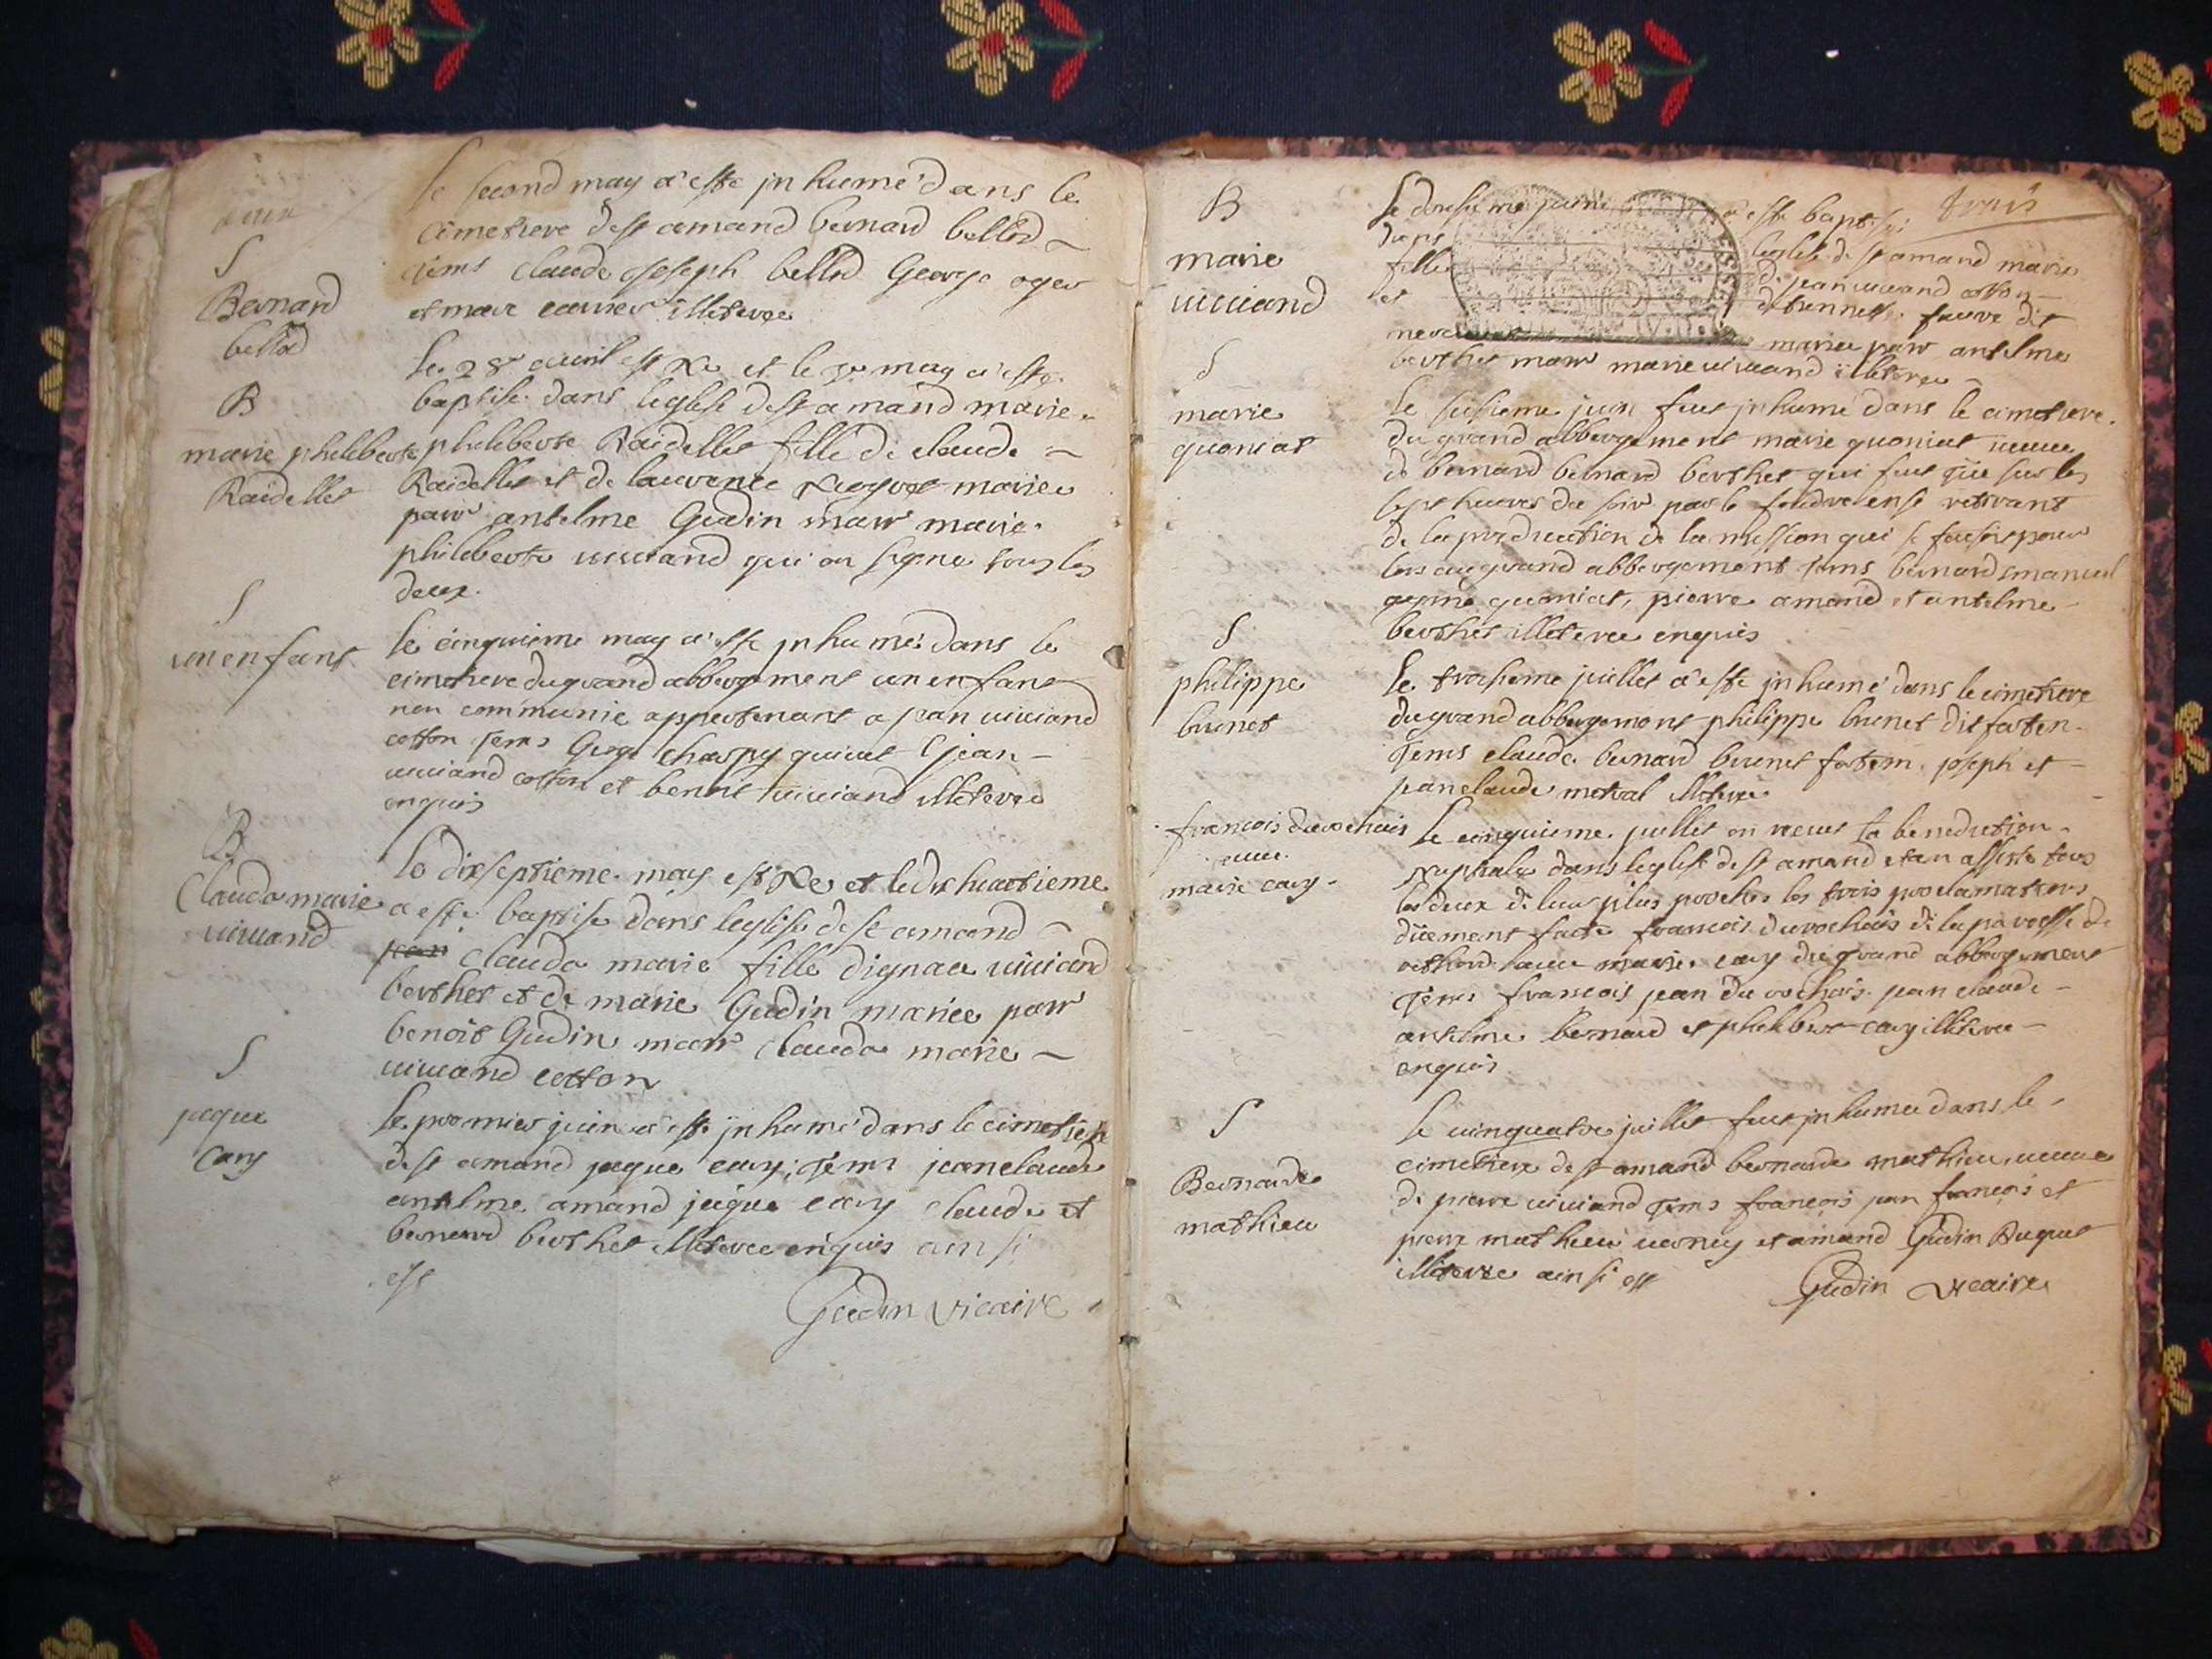 S
Bernard
bellod
le second may a esté jnhumé dans le
cimetiere de st amand bernard bellod
tems claude joseph bellod George oger
et marc illeteree
B
marie pheleberte
Raidellet
le 28e avril est né et le may a esté
baptisé dans leglise de st amand marie
pheleberte Raidellet fille de claude
Raidellet et de laurence mariee
parr antelme Gudin marr marie
phileberte uiuiand qui on signe tous les
deux.
S
un enfant
le cinquieme may a esté jnhumé dans le
cimetiere du grand abbergement un enfant
non communie appertenant a jean uiuiand
cotton tems George Jean
uiuiand cotton et benoit uiuiand illeteree
enquis
B
Clauda marie
uiuiand
le dixseptieme may est né et le dixhuictieme
a esté baptisé dans leglise de st amand
clauda marie fille dignace uiuiand
berthet et de marie Gudin mariee parr
benoit Gudin marr clauda marie
uiuiand cotton
S
jaque
Cary
le premier juin a esté jnhumé dans le cimetiere
de st amand jaque cary; tems jean claude
antelme amand jaque cary claude et
bernard berthet illeteree enquis ainsi
est
Gudin vicaire
trois
B
marie
uiuiand
le juin a esté baptisé
dans leglise de st amand marie
fille de jean uiuiand cotton
et detiennette fauvre dit
mariee parr antelme
berthet marr marie uiuiand illeteree
S
marie
quoniat
le juin fut jnhumé dans le cimetiere
du grand abbergement marie quoniat ueuue
de bernard bernard berthet qui fut tüe sur les
sept heures du soir par le foudre en se retirant
de la prediction de la mission qui se faisoit pour
lors au grand abbergement tems bernard emanuel
quoniat, pierre amand et antelme
berthet illeteree enquis
S
philippe
brunet
le troisieme juillet a esté jnhumé dans le cimetiere
du grand abbergement philippe brunet dit
tems claude bernard brunet joseph et
jean claude illeteree
francois durochais
auec
marie cary
le cinquieme juillet on receut la benediction
nuptiale dans leglise de st amand et an assisté tous
les deux de leur plus proches les trois proclamations
düement faite francois durochais de la paroesse de
auec marie cary du grand abbergement
tems francois jean durochais jean claude
antelme bernard et philibert cary illiteree
enquis
S
Bernarde
mathieu
le uingquatre juillet fut jnhumee dans le
cimetiere de st amand bernarde mathieu ueuue
de pierre uiuiand tems françois jean françois et
pierre mathieu et amand Gudin
illiteree ainsi est
Gudin vicaire